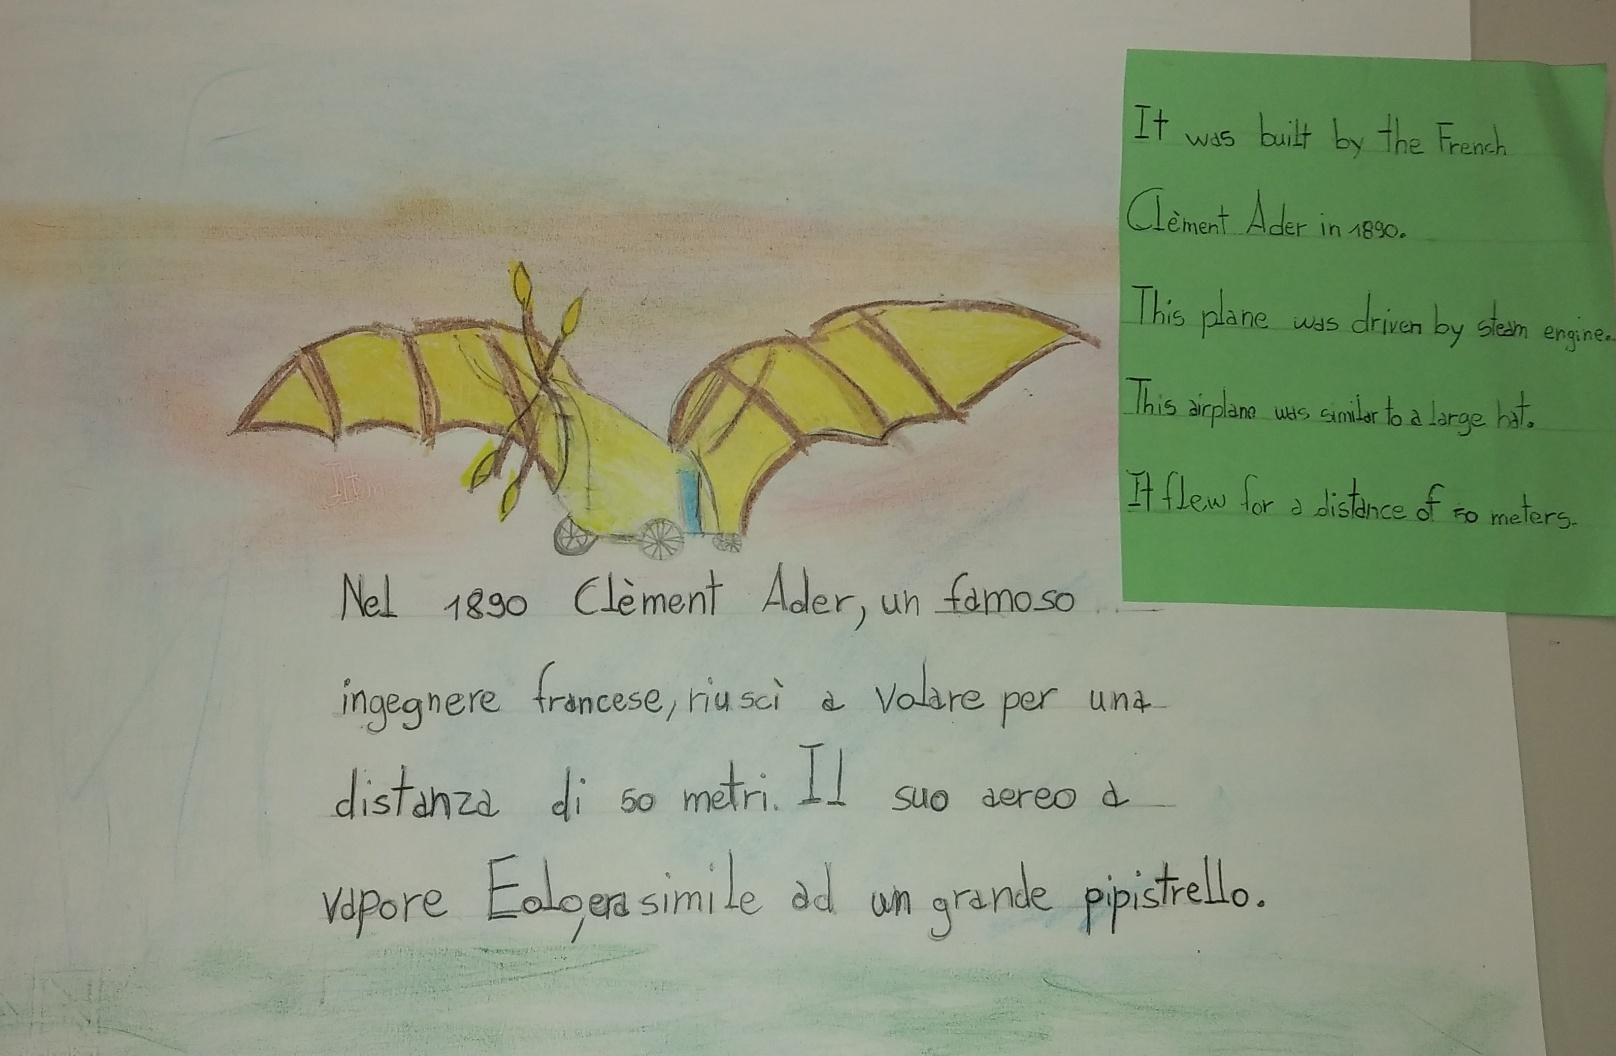 It was built by the French
Clèment Ader in 1890.
This plane was driven by steam engine.
This airplane was similar to a large hat.
It flew for a distance of 50 meters.
Nel 1890 Clèment Ader, un famoso
ingegnere francese, riuscì a volare per una
distanza di 50 metri. Il suo aereo a
vapore Eolo, era simile ad un grande pipistrello.